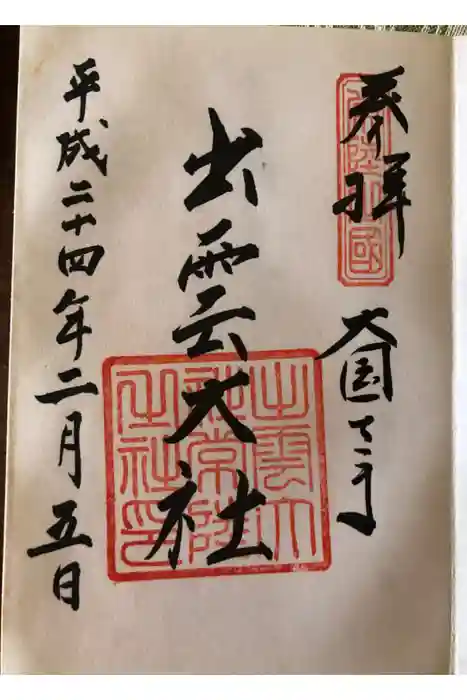 奉拝
大国
出雲大社
平成二十四年二月五日
出雲大
社常陸
社印